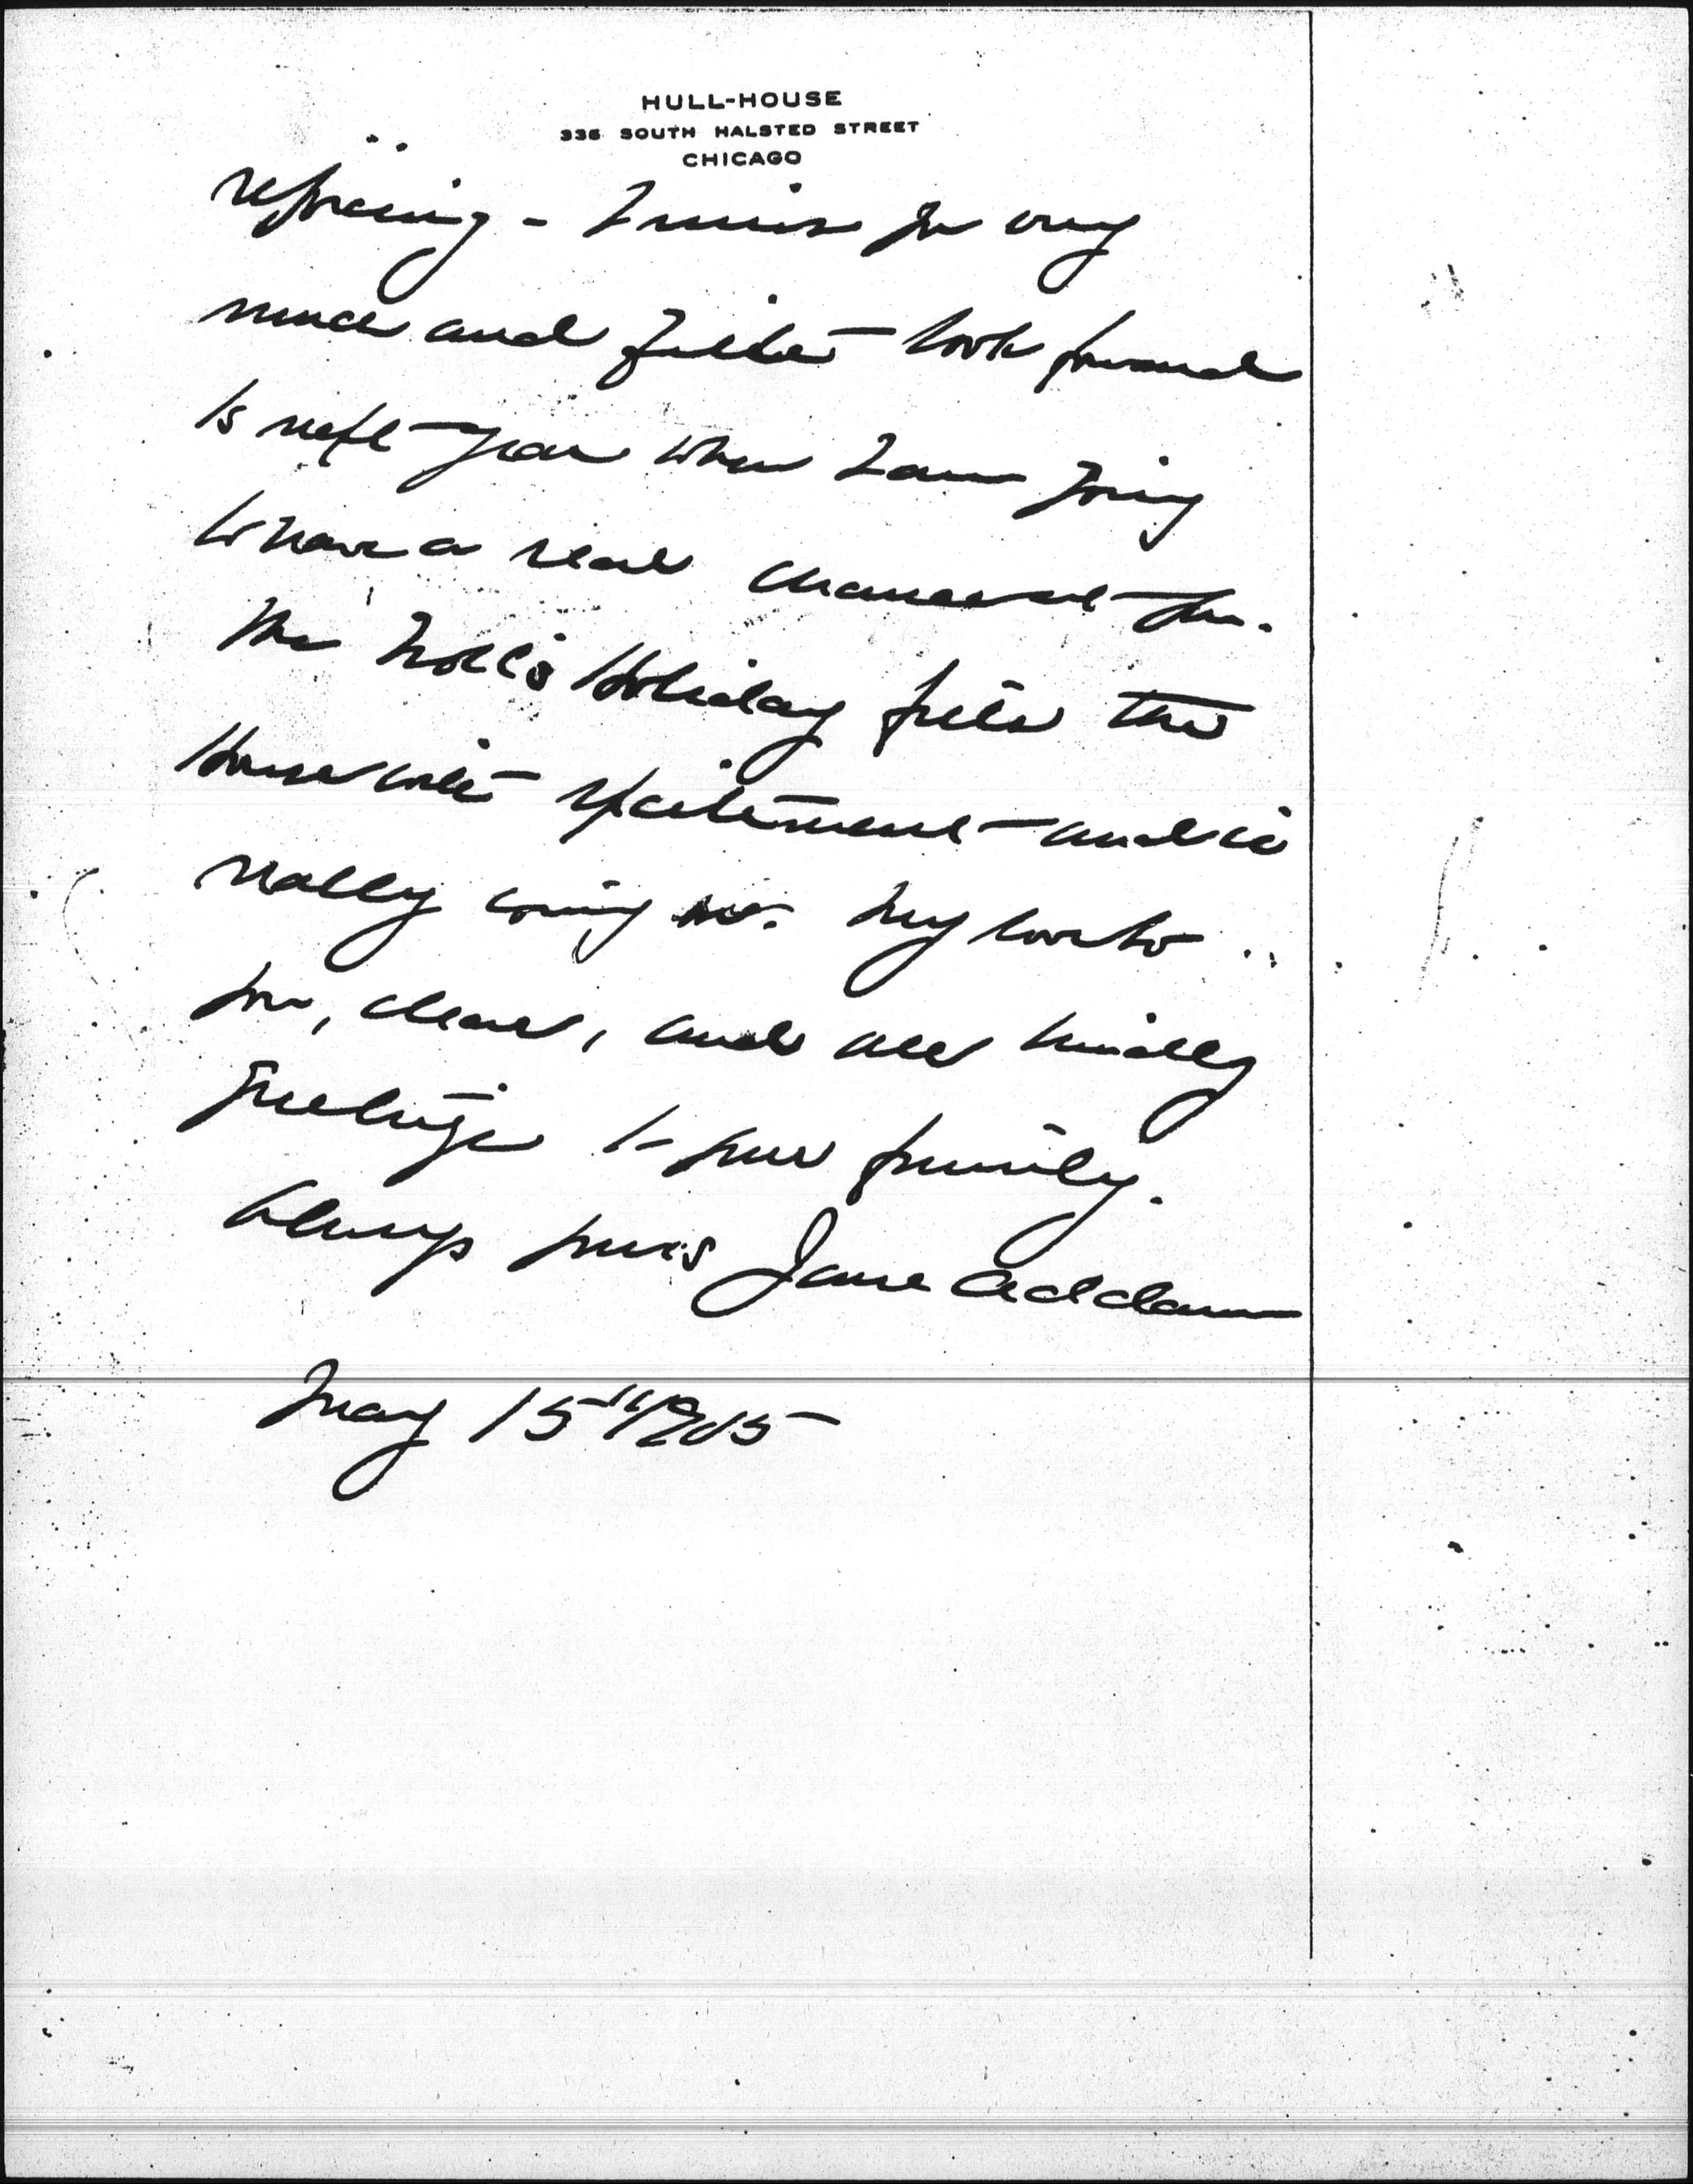 HULL-HOUSE
336 SOUTH HALSTED STREET
CHICAGO
rejoicing - I miss you very
much and quite look forward
to next year when I am going
to have a real chance at you.
The Troll's Holiday fills the
House with excitement and is
really coming on. My love to
you, dear, and all kindly
greetings to your family.
Always yours Jane Addams
May 15" 1905